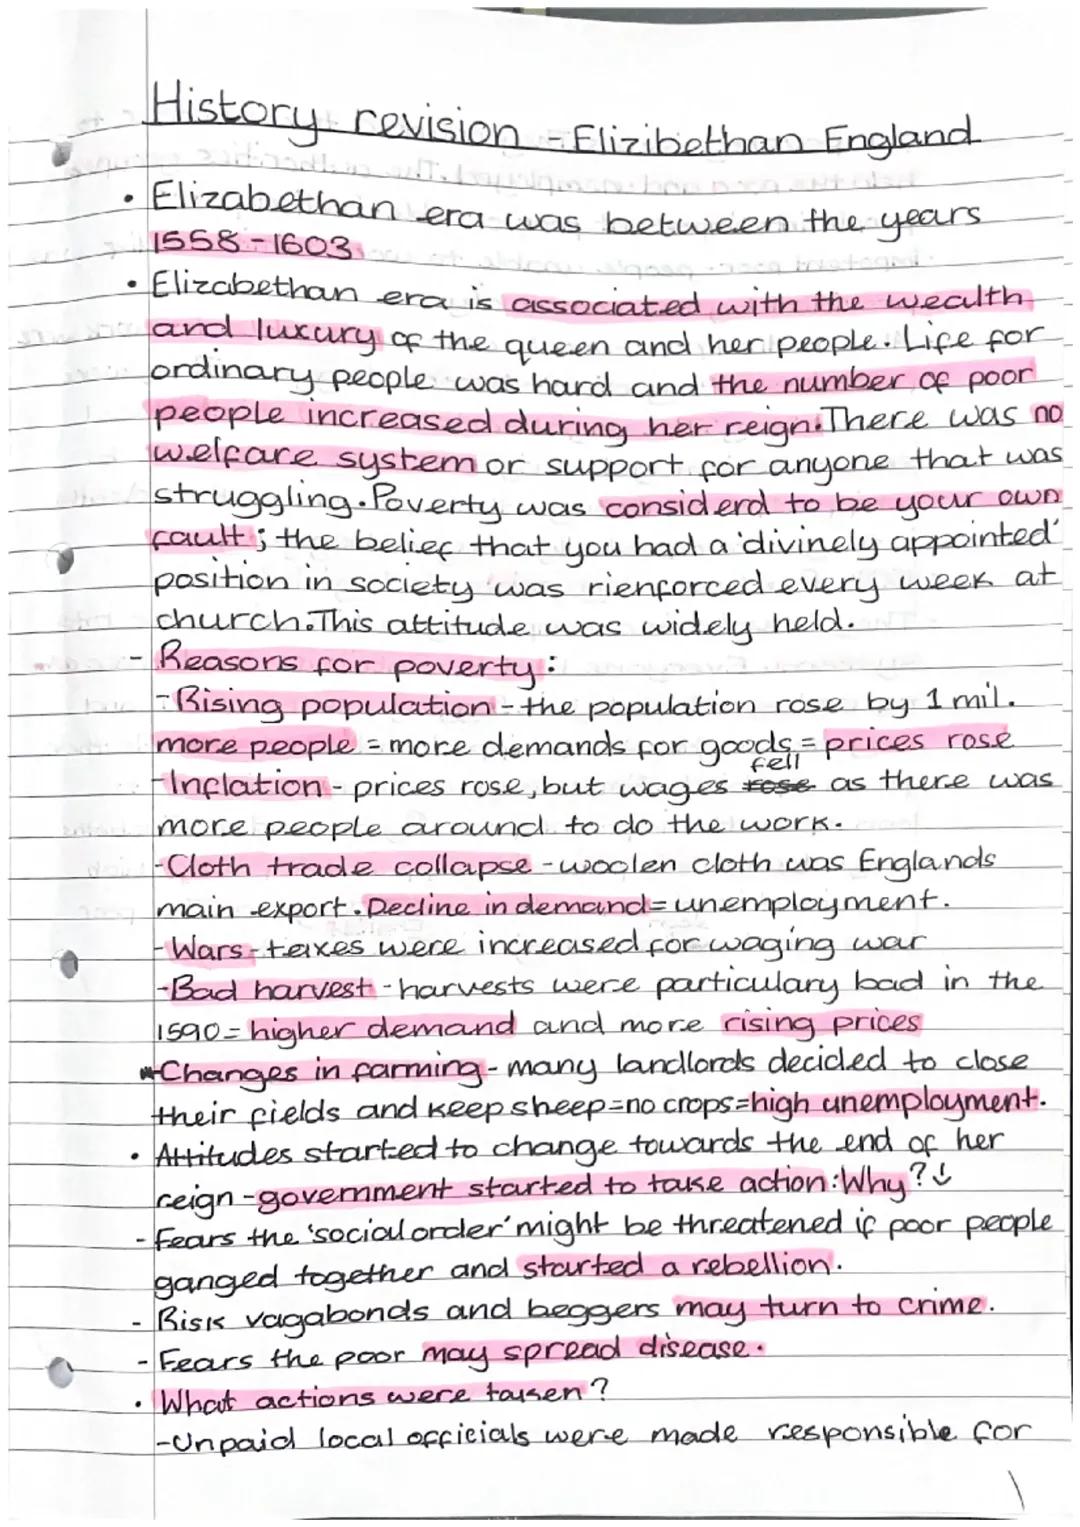 History revision - Elizibethan England
• Elizabethan era was between the years
1558-1603
• Elizabethan era is associated with the wealth
and luxury of the queen and her people. Life for
ordinary people was hard and the number of poor
people increased during her reign. There was no
welfare system or support for anyone that was
struggling. Poverty was considerd to be your own
fault; the belief that you had a 'divinely appointed'
position in society 'was rienforced every week at
church. This attitude was widely held.
- Reasons for poverty:
- Rising population - the population rose by 1 mil.
more people = more demands for goods = prices rose
fell
- Inflation - prices rose, but wages rose as there was
more people around to do the work.
- Cloth trade collapse - woolen cloth was Englands
main export. Decline in demand = unemployment.
- Wars - taxes were increased for waging war
- Bad harvest - harvests were particulary bad in the
1590 = higher demand and more rising prices
- Changes in farming - many landlords decided to close
their fields and keep sheep = no crops = high unemployment.
• Attitudes started to change towards the end of her
reign - government started to take action: Why? ↓
- Fears the 'social order' might be threatened if poor people
ganged together and started a rebellion.
- Risk vagabonds and beggers may turn to crime.
- Fears the poor may spread disease.
• What actions were taken?
- Unpaid local officials were made responsible for